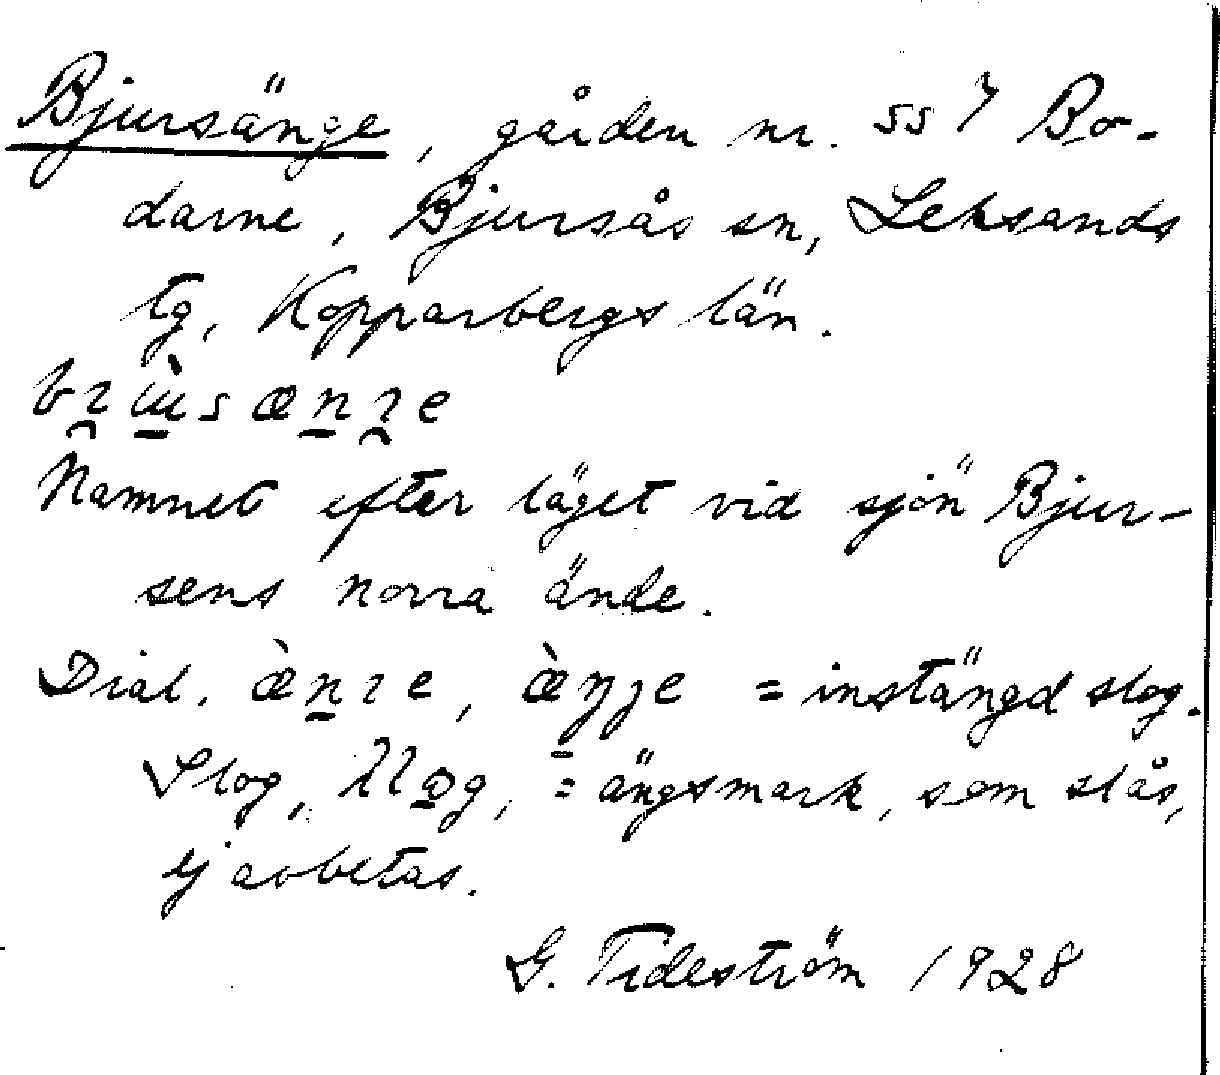 Bjursänge, gården nr. 55 i Bo-
darne, Bjursås sn, Leksands
tg, Kopparbergs län.
Namnet efter läget vid sjön Bjur-
sens norra ände.
Dial. = instängd slog.
Slog, = ängsmark, som slås,
ej avbetas.
G. Tideström 1928